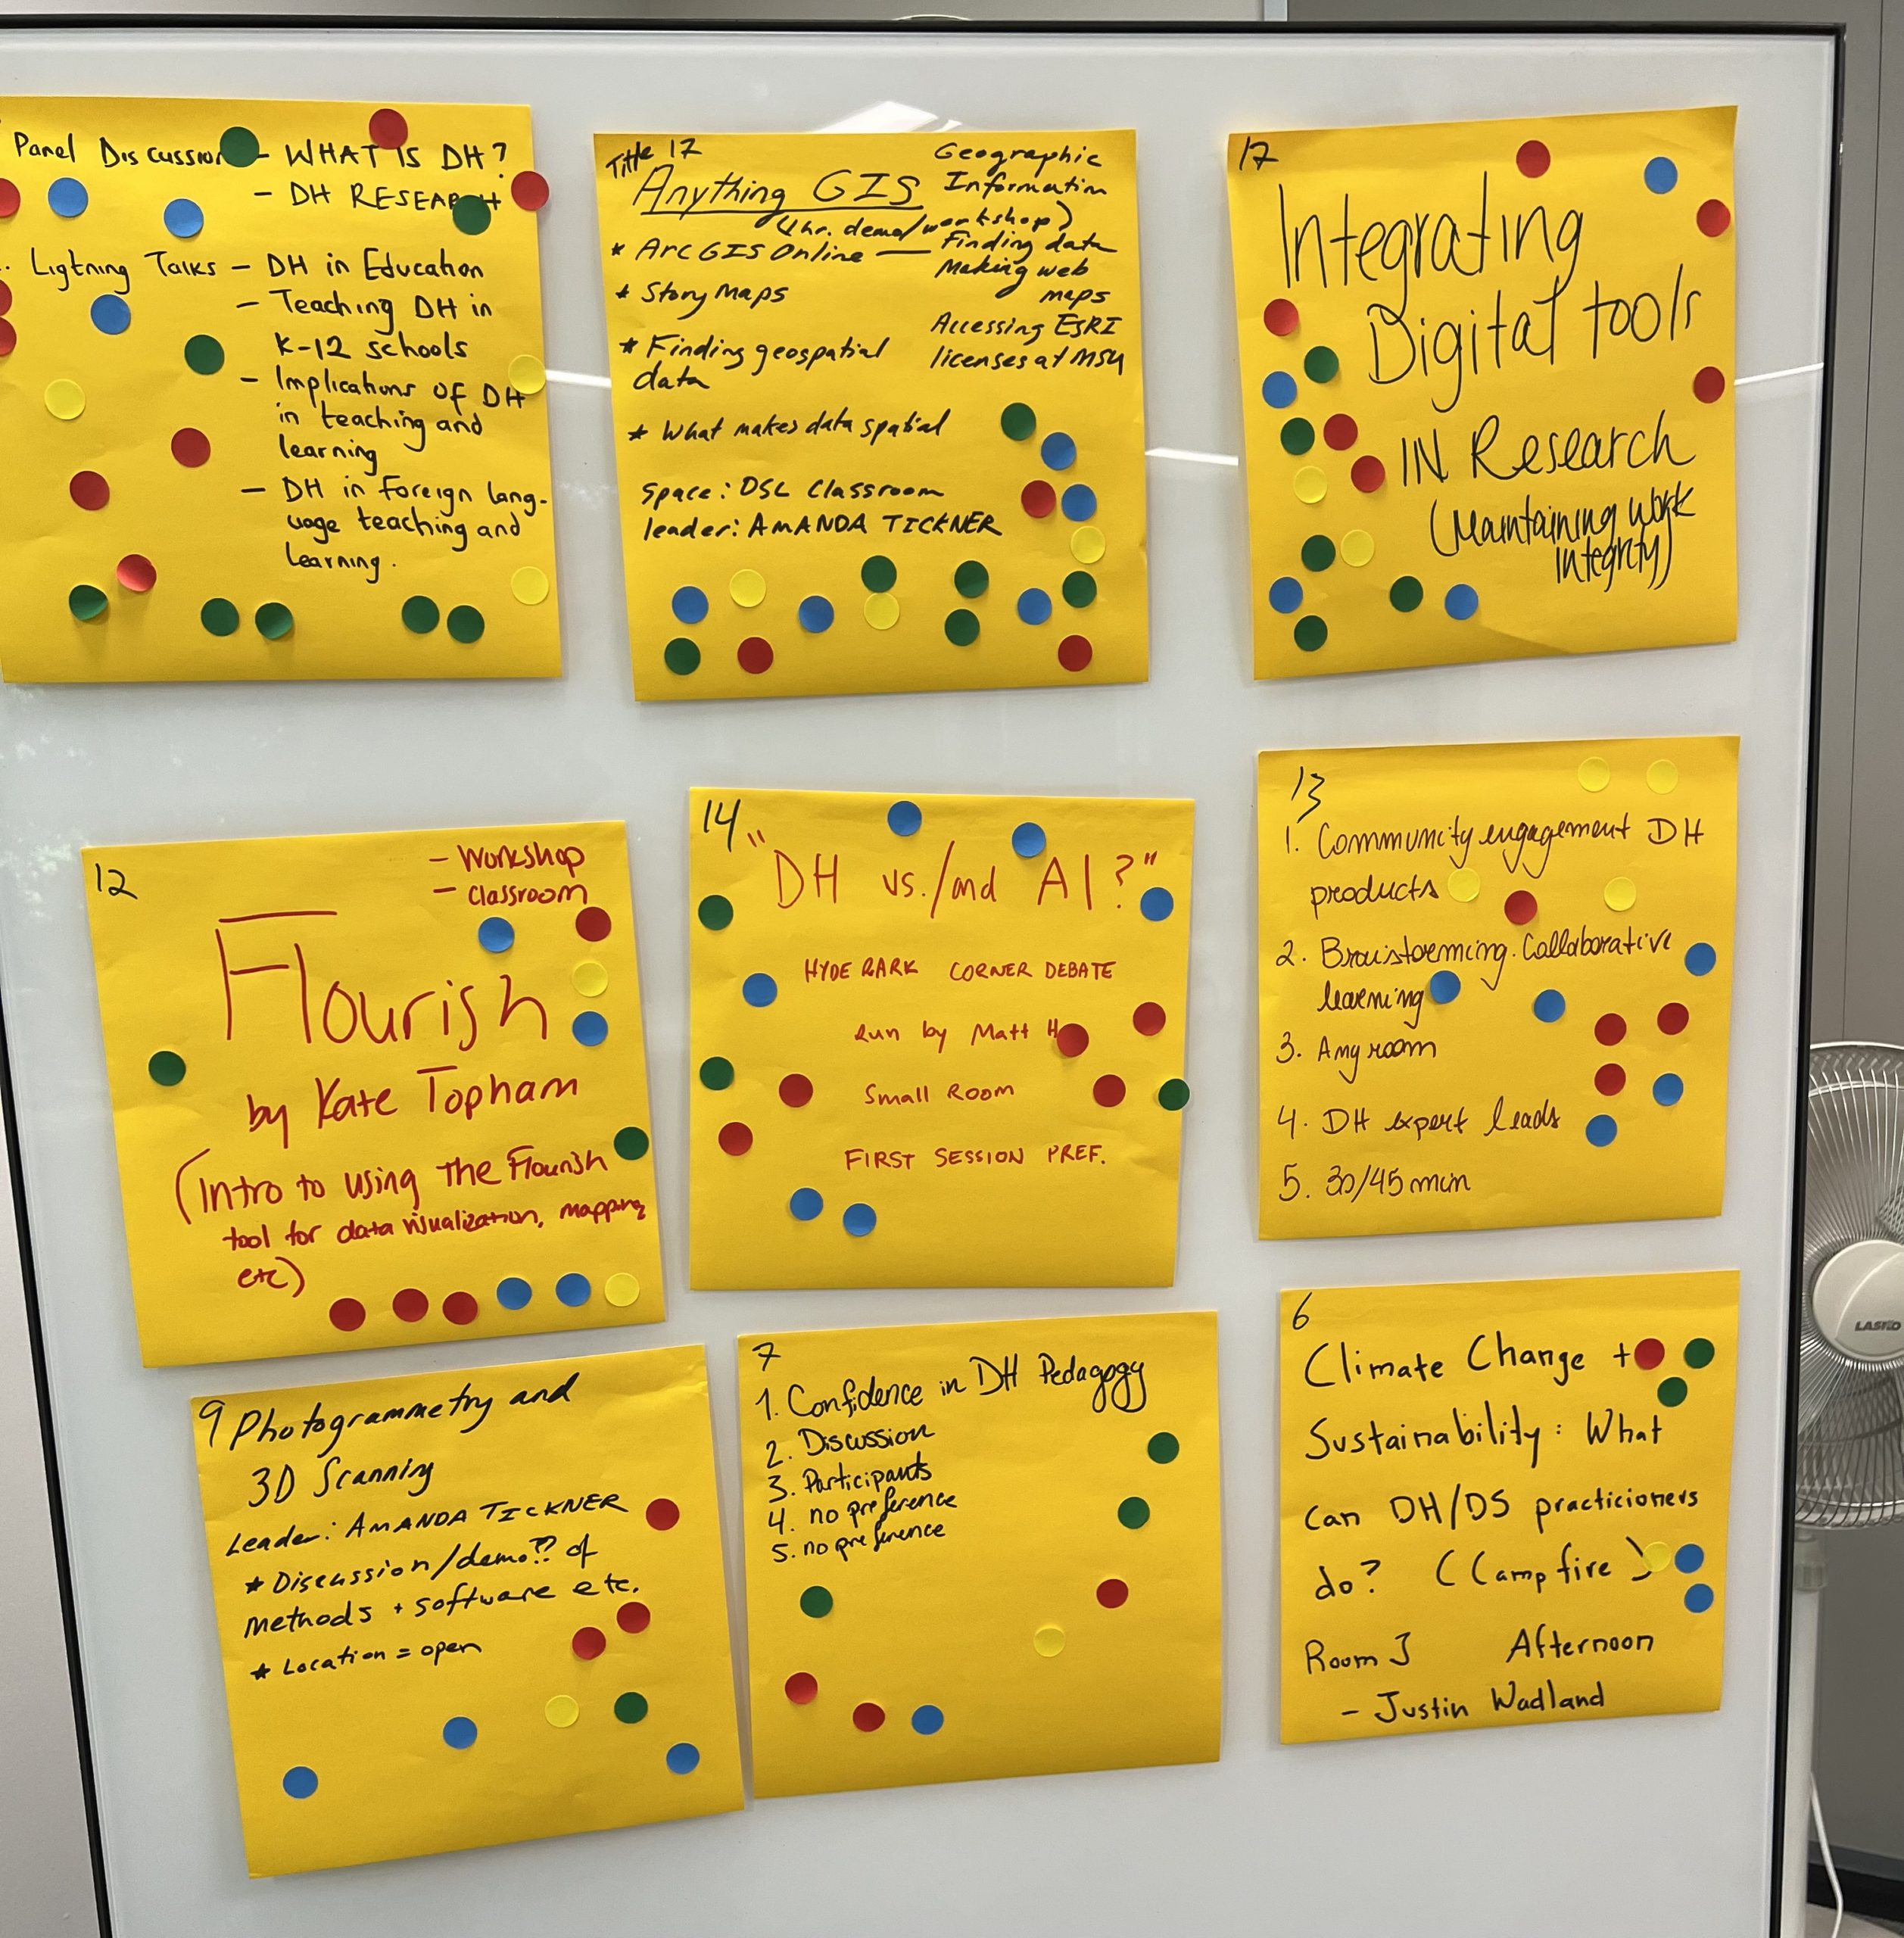 Panel Discussion - WHAT IS DH?
- DH RESEARCH
Ligtning Talks - DH in Education
- Teaching DH in
K-12 schools
- Implications of DH
in teaching and
learning
- DH in foreign lang-
uage teaching and
learning.
Title 17
Anything GIS
(1hr. demo/workshop)
* ArcGIS Online —
* Story Maps
* Finding geospatial
data
* What makes data spatial
Geographic
Information
Finding data
Making web
maps
Accessing ESRI
licenses at MSU
Space: DSL Classroom
leader: AMANDA TICKNER
17
Integrating
Digital tools
IN Research
(Maintaining work
integrity)
12
- Workshop
- Classroom
Flourish
by Kate Topham
(Intro to using the Flourish
tool for data visualization, mapping
etc)
14
"DH vs./and AI?"
HYDE PARK CORNER DEBATE
Run by Matt H
Small Room
FIRST SESSION PREF.
13
1. Community engagement DH
products
2. Brainstorming. Collaborative
learning
3. Any room
4. DH expert leads
5. 30/45 min
9 Photogrammetry and
3D Scanning
Leader: AMANDA TICKNER
* Discussion/demo?? of
methods + software etc.
* Location = open
7
1. Confidence in DH Pedagogy
2. Discussion
3. Participants
4. no preference
5. no preference
6
Climate Change +
Sustainability: What
can DH/DS practicioners
do? (Campfire)
Room 3 Afternoon
- Justin Wadland
LASKO